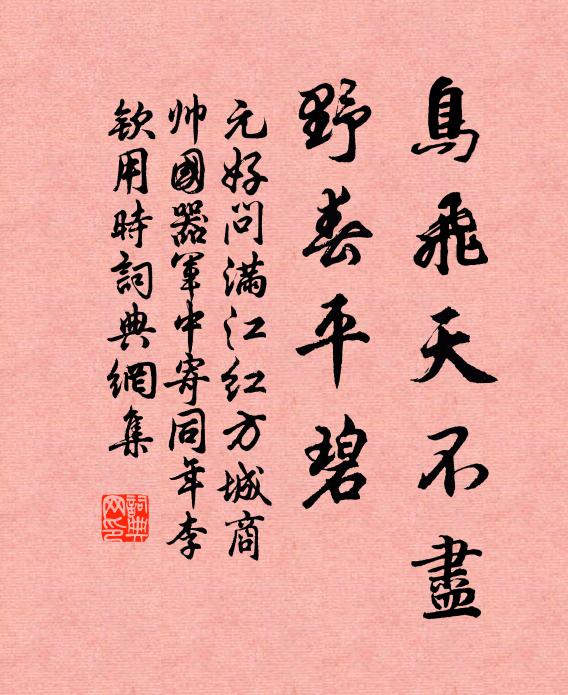 鳥飛天不盡
野春平碧
元好問滿江紅方城商
帥國器軍中寄同年李
欽用時詞典網集
詞典網印